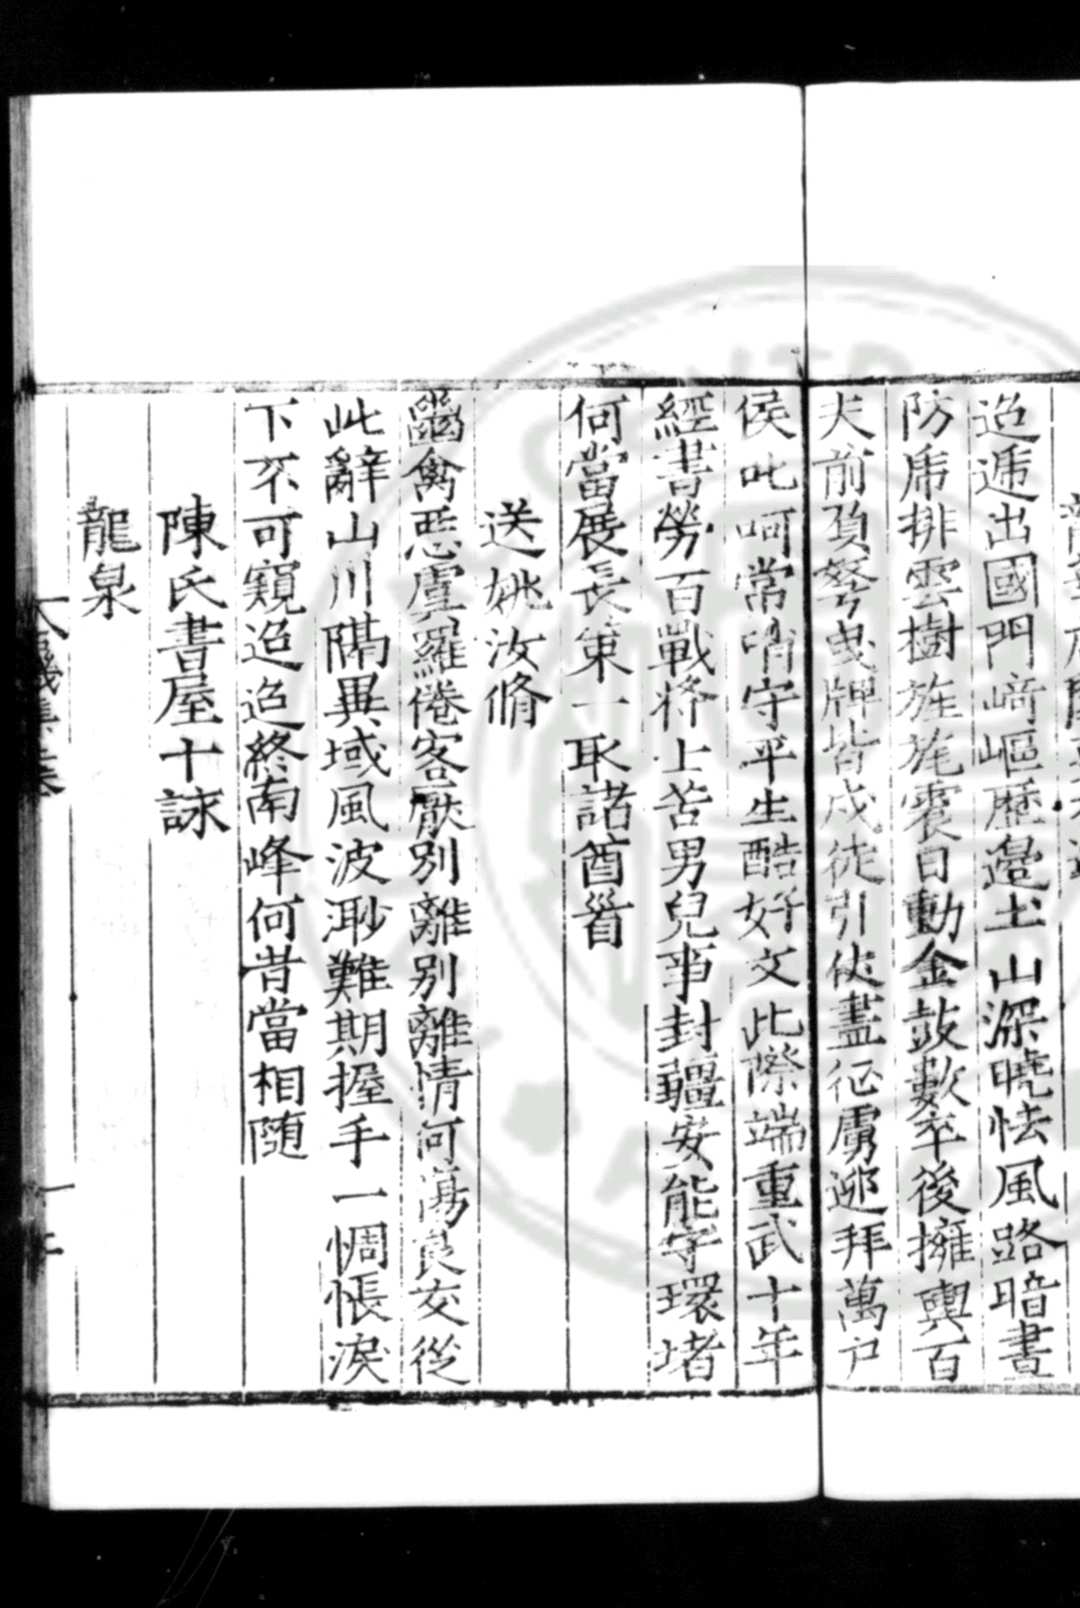 迢遞出國門﨑嶇歷邉土山深曉怯風路暗晝
防虎排雲樹旌旄震日動金鼓數卒後擁輿百
夫前負弩曳牌皆戍徒引伕盡征虜遮拜萬户
侯叱呵常啃守平生酷好文此際端重武十年
經書勞百戰将上苦男兒事封疆安能守環堵
何當展長策一取諸酋首
送姚汝脩
羈禽惡虞羅倦客厭别離别離情何薄良交從
此辭山川隔異域風波渺難期握手一惆悵淚
下不可窺迢迢終南峰何昔當相随
陳氏書屋十詠
龍泉